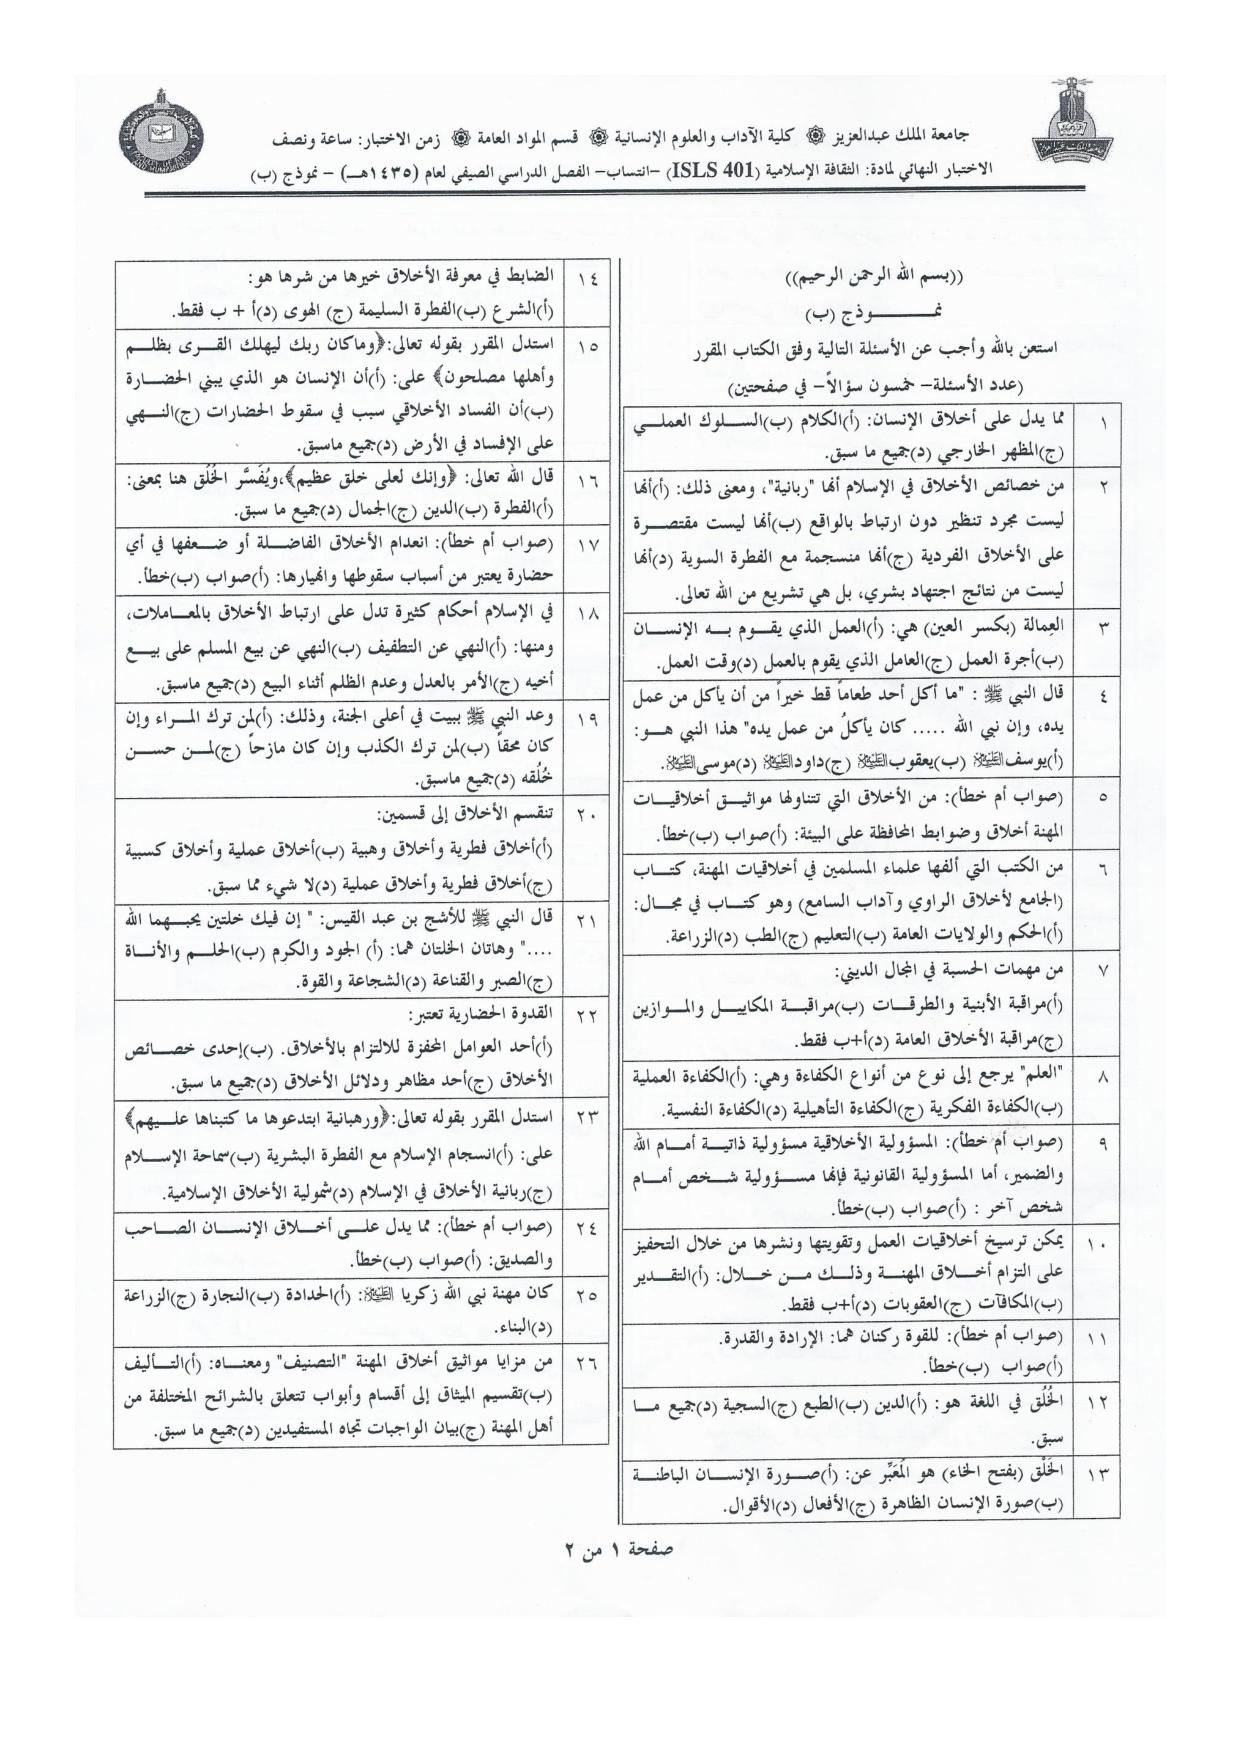 جامعة الملك عبدالعزيز ۞ كلية الآداب والعلوم الإنسانية ۞ قسم المواد العامة ۞ زمن الاختبار: ساعة ونصف
الاختبار النهائي لمادة: الثقافة الإسلامية (ISLS 401) –انتساب– الفصل الدراسي الصيفي لعام (١٤٣٥هـ) – نموذج (ب)
((بسم الله الرحمن الرحيم))
نمـــوذج (ب)
استعن بالله وأجب عن الأسئلة التالية وفق الكتاب المقرر
(عدد الأسئلة– خمسون سؤالاً– في صفحتين)
١ مما يدل على أخلاق الإنسان: (أ)الكلام (ب)السلوك العملي
(ج)المظهر الخارجي (د)جميع ما سبق.
٢ من خصائص الأخلاق في الإسلام أنها "ربانية"، ومعنى ذلك: (أ)أنها
ليست مجرد تنظير دون ارتباط بالواقع (ب)أنها ليست مقتصرة
على الأخلاق الفردية (ج)أنها منسجمة مع الفطرة السوية (د)أنها
ليست من نتائج اجتهاد بشري، بل هي تشريع من الله تعالى.
٣ العِمالة (بكسر العين) هي: (أ)العمل الذي يقوم به الإنسان
(ب)أجرة العمل (ج)العامل الذي يقوم بالعمل (د)وقت العمل.
٤ قال النبي ﷺ : "ما أكل أحد طعاماً قط خيراً من أن يأكل من عمل
يده، وإن نبي الله ..... كان يأكلُ من عمل يده" هذا النبي هو:
(أ)يوسف عليه السلام (ب)يعقوب عليه السلام (ج)داود عليه السلام (د)موسى عليه السلام.
٥ (صواب أم خطأ): من الأخلاق التي تتناولها مواثيق أخلاقيات
المهنة أخلاق وضوابط المحافظة على البيئة: (أ)صواب (ب)خطأ.
٦ من الكتب التي ألفها علماء المسلمين في أخلاقيات المهنة، كتاب
(الجامع لأخلاق الراوي وآداب السامع) وهو كتاب في مجال:
(أ)الحكم والولايات العامة (ب)التعليم (ج)الطب (د)الزراعة.
٧ من مهمات الحسبة في المجال الديني:
(أ)مراقبة الأبنية والطرقات (ب)مراقبة المكاييل والموازين
(ج)مراقبة الأخلاق العامة (د)أ+ب فقط.
٨ "العلم" يرجع إلى نوع من أنواع الكفاءة وهي: (أ)الكفاءة العملية
(ب)الكفاءة الفكرية (ج)الكفاءة التأهيلية (د)الكفاءة النفسية.
٩ (صواب أم خطأ): المسؤولية الأخلاقية مسؤولية ذاتية أمام الله
والضمير، أما المسؤولية القانونية فإنها مسؤولية شخص أمام
شخص آخر : (أ)صواب (ب)خطأ.
١٠ يمكن ترسيخ أخلاقيات العمل وتقويتها ونشرها من خلال التحفيز
على التزام أخلاق المهنة وذلك من خلال: (أ)التقدير
(ب)المكافآت (ج)العقوبات (د)أ+ب فقط.
١١ (صواب أم خطأ): للقوة ركنان هما: الإرادة والقدرة.
(أ)صواب (ب)خطأ.
١٢ الخُلُق في اللغة هو: (أ)الدين (ب)الطبع (ج)السجية (د)جميع ما
سبق.
١٣ الخَلْق (بفتح الخاء) هو المُعَبِّر عن: (أ)صورة الإنسان الباطنة
(ب)صورة الإنسان الظاهرة (ج)الأفعال (د)الأقوال.
١٤ الضابط في معرفة الأخلاق خيرها من شرها هو:
(أ)الشرع (ب)الفطرة السليمة (ج) الهوى (د)أ + ب فقط.
١٥ استدل المقرر بقوله تعالى:﴿وماكان ربك ليهلك القرى بظلم
وأهلها مصلحون﴾ على: (أ)أن الإنسان هو الذي يبني الحضارة
(ب)أن الفساد الأخلاقي سبب في سقوط الحضارات (ج)النهي
على الإفساد في الأرض (د)جميع ماسبق.
١٦ قال الله تعالى: ﴿وإنك لعلى خلق عظيم﴾،ويُفَسَّر الخُلُق هنا بمعنى:
(أ)الفطرة (ب)الدين (ج)الجمال (د)جميع ما سبق.
١٧ (صواب أم خطأ): انعدام الأخلاق الفاضلة أو ضعفها في أي
حضارة يعتبر من أسباب سقوطها وانهيارها: (أ)صواب (ب)خطأ.
١٨ في الإسلام أحكام كثيرة تدل على ارتباط الأخلاق بالمعاملات،
ومنها: (أ)النهي عن التطفيف (ب)النهي عن بيع المسلم على بيع
أخيه (ج)الأمر بالعدل وعدم الظلم أثناء البيع (د)جميع ماسبق.
١٩ وعد النبي ﷺ ببيت في أعلى الجنة، وذلك: (أ)لمن ترك المراء وإن
كان محقاً (ب)لمن ترك الكذب وإن كان مازحاً (ج)لمن حسن
خُلُقه (د)جميع ماسبق.
٢٠ تنقسم الأخلاق إلى قسمين:
(أ)أخلاق فطرية وأخلاق وهبية (ب)أخلاق عملية وأخلاق كسبية
(ج)أخلاق فطرية وأخلاق عملية (د)لا شيء مما سبق.
٢١ قال النبي ﷺ للأشج بن عبد القيس: " إن فيك خلتين يحبهما الله
...." وهاتان الخلتان هما: (أ) الجود والكرم (ب)الحلم والأناة
(ج)الصبر والقناعة (د)الشجاعة والقوة.
٢٢ القدوة الحضارية تعتبر:
(أ)أحد العوامل المحفزة للالتزام بالأخلاق. (ب)إحدى خصائص
الأخلاق (ج)أحد مظاهر ودلائل الأخلاق (د)جميع ما سبق.
٢٣ استدل المقرر بقوله تعالى:﴿ورهبانية ابتدعوها ما كتبناها عليهم﴾
على: (أ)انسجام الإسلام مع الفطرة البشرية (ب)سماحة الإسلام
(ج)ربانية الأخلاق في الإسلام (د)شمولية الأخلاق الإسلامية.
٢٤ (صواب أم خطأ): مما يدل على أخلاق الإنسان الصاحب
والصديق: (أ)صواب (ب)خطأ.
٢٥ كان مهنة نبي الله زكريا عليه السلام: (أ)الحدادة (ب)النجارة (ج)الزراعة
(د)البناء.
٢٦ من مزايا مواثيق أخلاق المهنة "التصنيف" ومعناه: (أ)التأليف
(ب)تقسيم الميثاق إلى أقسام وأبواب تتعلق بالشرائح المختلفة من
أهل المهنة (ج)بيان الواجبات تجاه المستفيدين (د)جميع ما سبق.
صفحة ١ من ٢